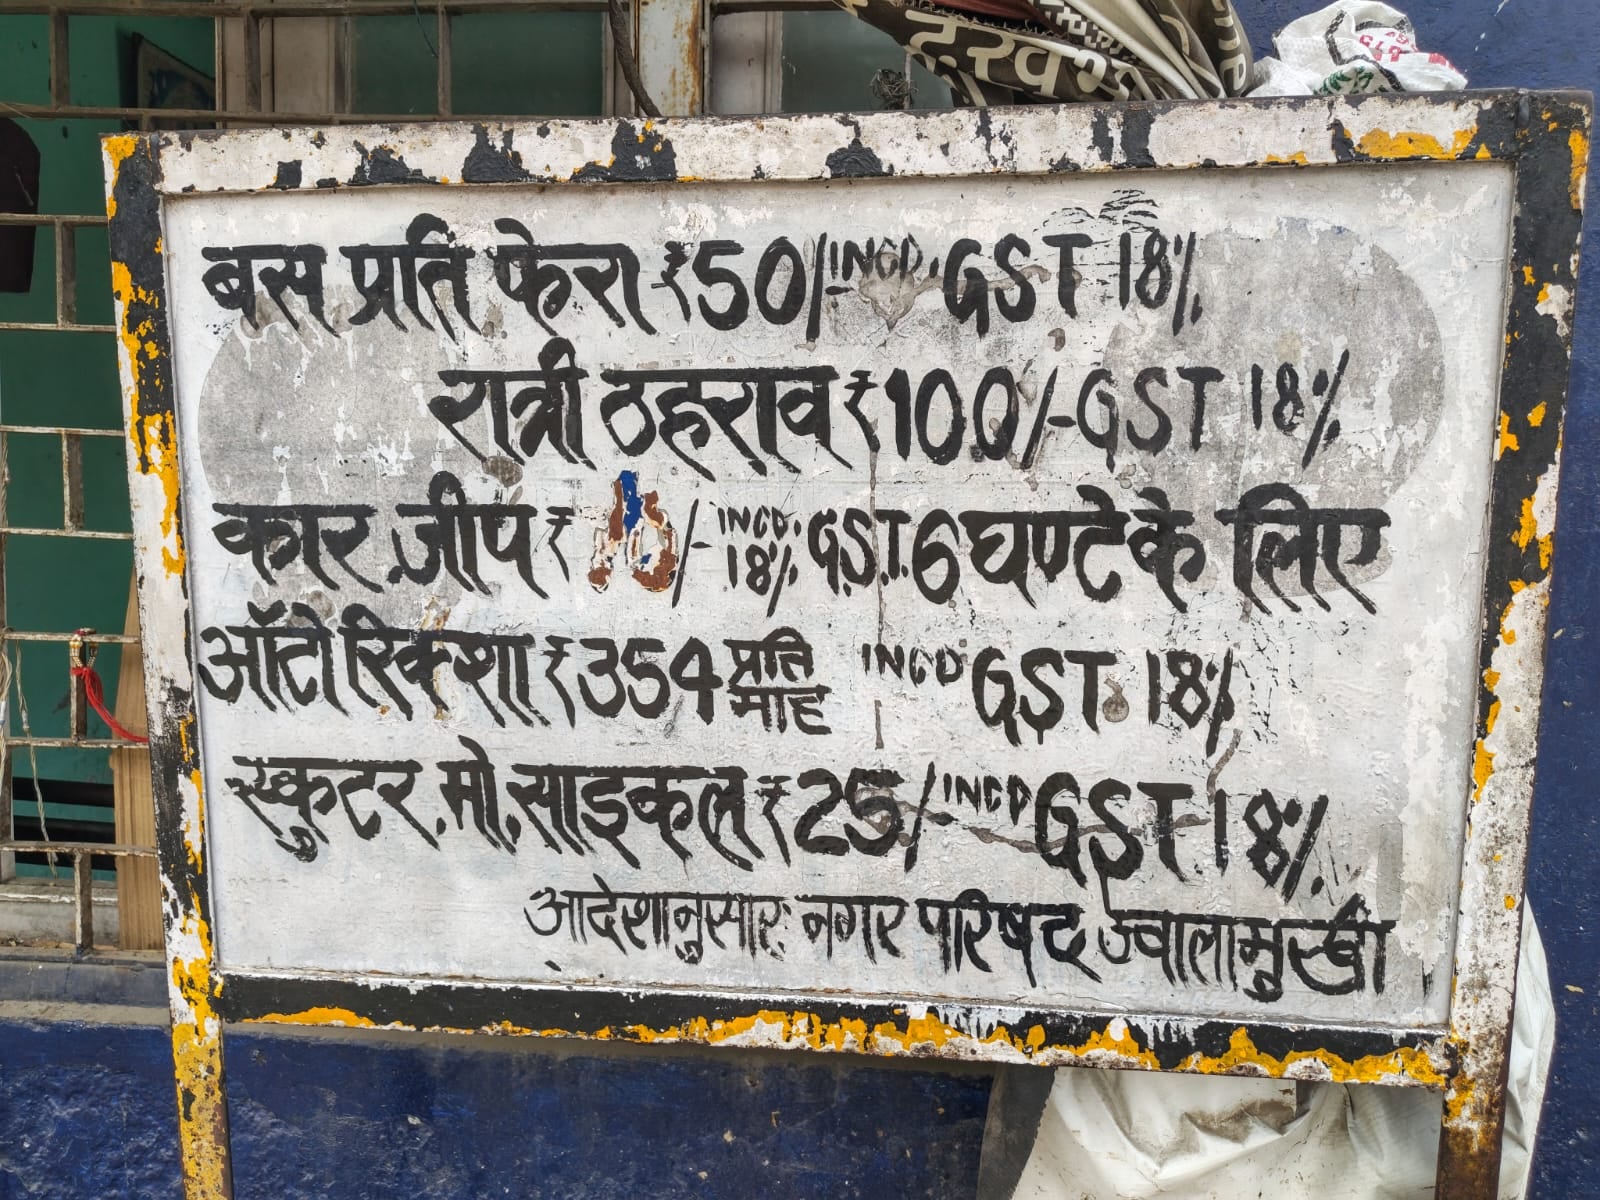 दरख
बस प्रति फेरा ₹50/- INCD. GST 18%
रात्री ठहराव ₹100/- GST 18%
कार जीप ₹ /- INCD. 18% G.S.T. 6 घण्टे के लिए
ऑटो रिक्शा ₹354 प्रति माह INCD GST 18%
स्कुटर, मो. साइकल ₹25/- INCD GST 18%
आदेशानुसारः नगर परिषद ज्वालामुखी